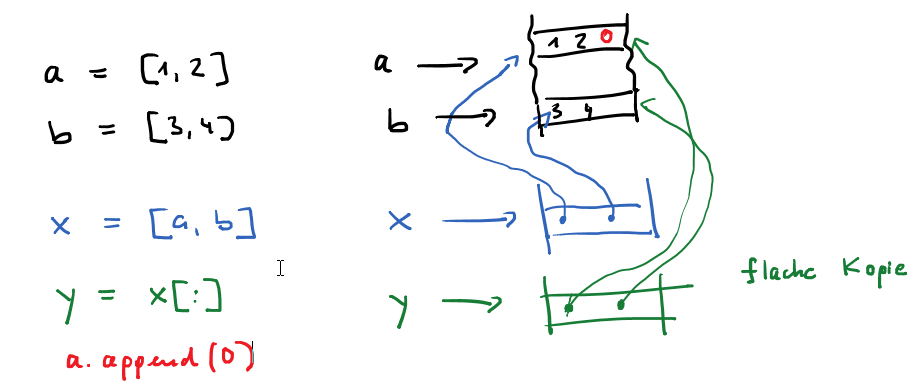 a = [1, 2]
b = [3, 4]
x = [a, b]
y = x[:]
a. append (0)
a
1 2 0
b
3 4
x
y
flache Kopie